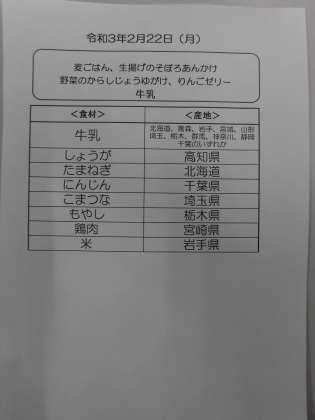 令和3年2月22日（月）
麦ごはん、生揚げのそぼろあんかけ
野菜のからしじょうゆがけ、りんごゼリー
牛乳
＜食材＞ ＜産地＞
牛乳 北海道、青森、岩手、宮城、山形
埼玉、栃木、群馬、神奈川、静岡
千葉のいずれか
しょうが 高知県
たまねぎ 北海道
にんじん 千葉県
こまつな 埼玉県
もやし 栃木県
鶏肉 宮崎県
米 岩手県